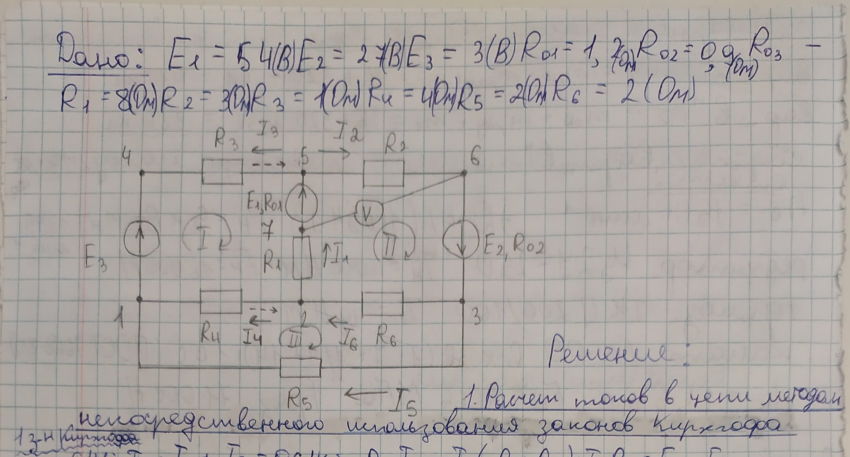 Дано: E1 = 54(В) E2 = 27(В) E3 = 3(В) R01 = 1,2(Ом) R02 = 0,9(Ом) R03 –
R1 = 8(Ом) R2 = 3(Ом) R3 = 1(Ом) R4 = 4(Ом) R5 = 2(Ом) R6 = 2(Ом)
R3 I3 I2 R2
4 5 6
E1,R01 V
7
E3 I R1 I1 II E2,R02
1 2 3
R4 I4 III I6 R6
Решение:
R5 I5
1. Расчет токов в цепи методом
непосредственного использования законов Кирхгофа
1 з-н Кирхгофа